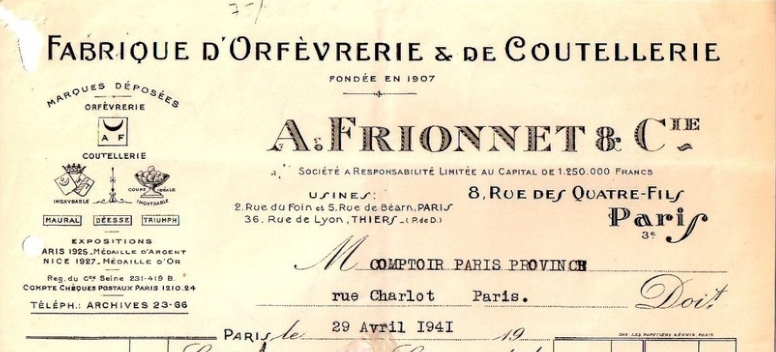 FABRIQUE D'ORFÈVRERIE & DE COUTELLERIE
FONDÉE EN 1907
MARQUES DÉPOSÉES
ORFÈVRERIE
A F
COUTELLERIE
INUSABLE
COUPE IDÉALE
INOXYDABLE
MAURAL DÉESSE TRIUMPH
EXPOSITIONS
ARIS 1925, MÉDAILLE D'ARGENT
NICE 1927, MÉDAILLE D'OR
Reg. du Cce Seine 231-419 B
COMPTE CHÈQUES POSTAUX PARIS 1210.24
TÉLÉPH.: ARCHIVES 23-66
A. FRIONNET & CIE
SOCIÉTÉ A RESPONSABILITÉ LIMITÉE AU CAPITAL DE 1.250.000 FRANCS
USINES:
2, Rue du Foin et 5, Rue de Béarn, PARIS
36, Rue de Lyon, THIERS_(P.de D.)
8, RUE DES QUATRE-FILS
Paris
3e
M COMPTOIR PARIS PROVINCE
rue Charlot Paris.
Doit
PARIS, le 29 Avril 1941 19